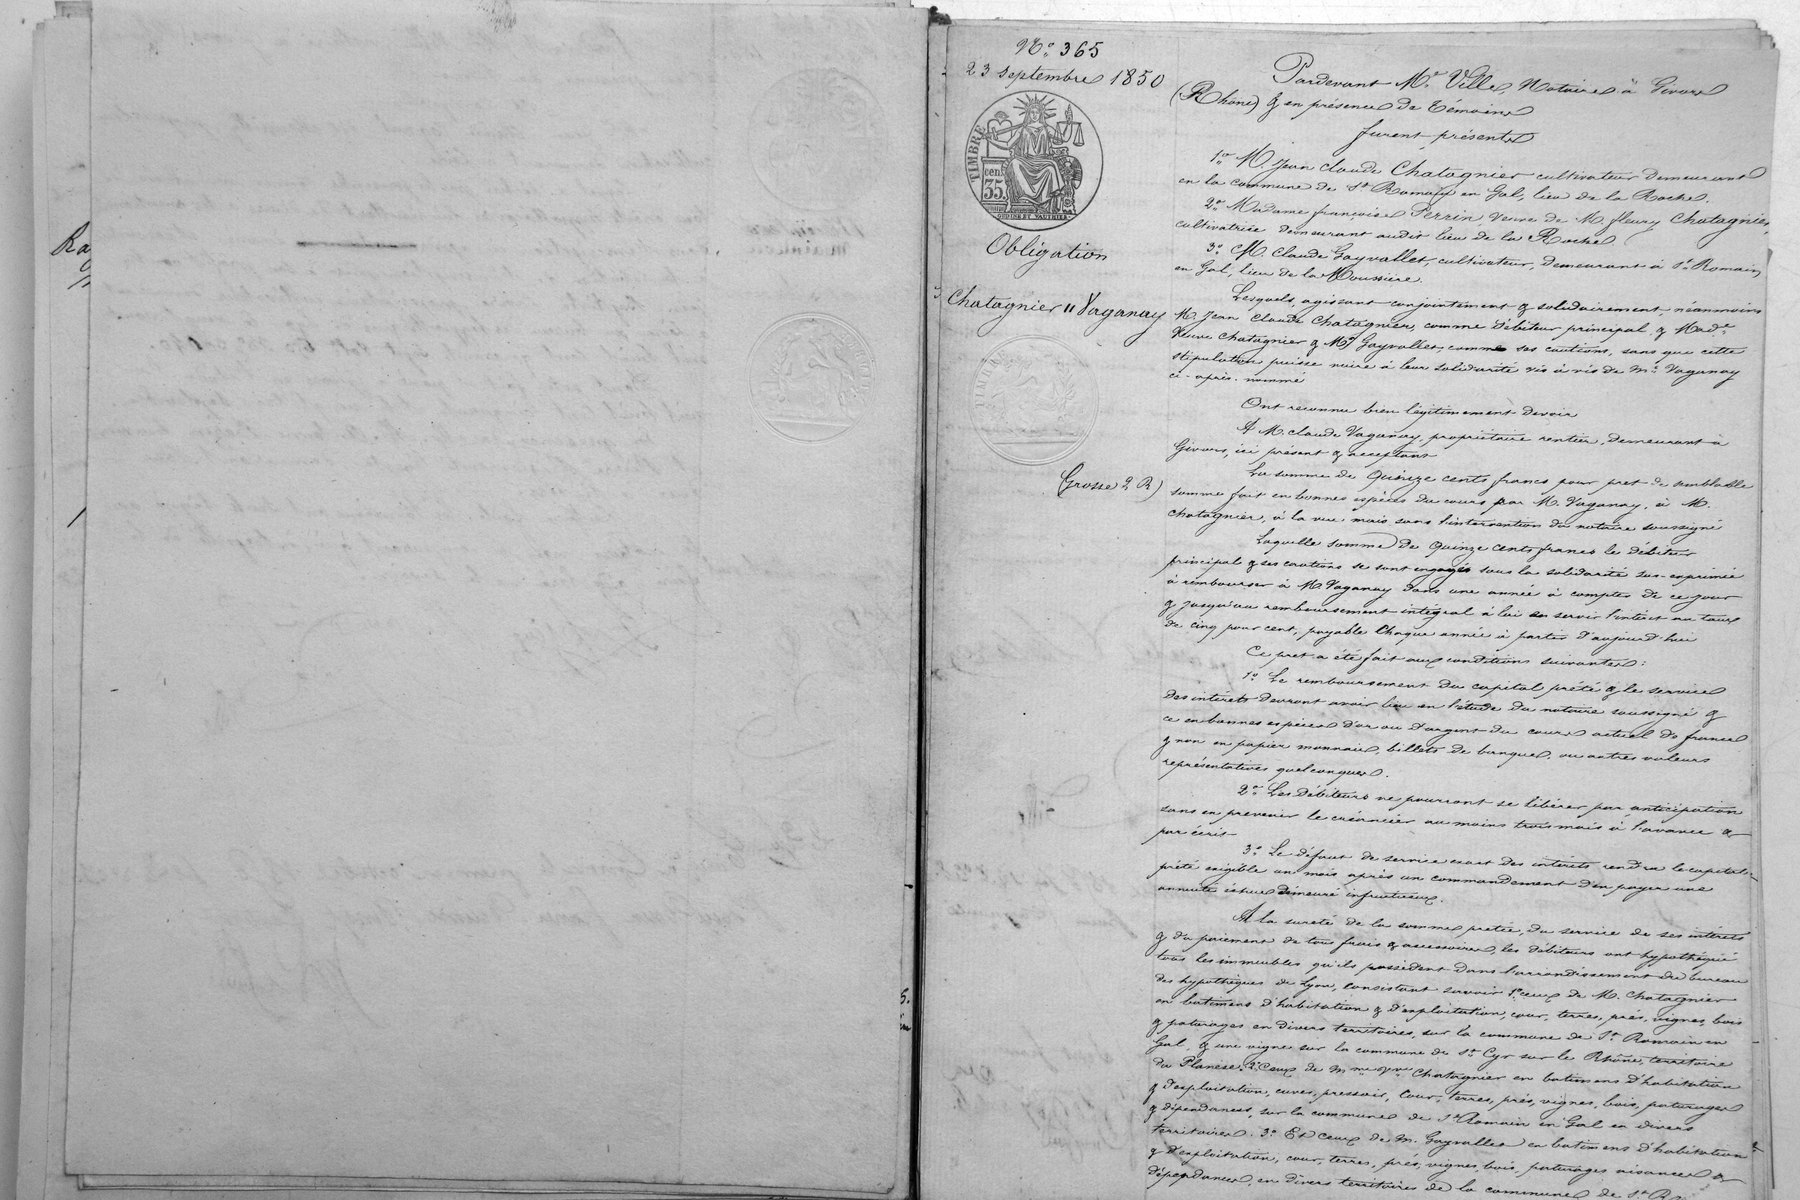 Ra
N.o 365
23 septembre 1850
TIMBRE
cent
35.
Obligation
Chatagnier " Vaganay
Grosse 2 R)
Pardevant Me Ville, Notaire à Givors
(Rhône) & en présence de témoins
furent présents
1.o M. Jean Claude Chatagnier cultivateur demeurant
en la commune de St Romain en Gal, lieu de la Roche.
2.o Madame françoise Perrin veuve de M. fleury Chatagnier,
cultivatrice demeurant audit lieu de la Roche
3.o M. Claude Gayvallet, cultivateur, demeurant à St Romain
en Gal, lieu de la Moussiere.
Lesquels, agissant conjointement & solidairement, néanmoins
M. Jean Claude Chatagnier, comme débiteur principal & Made
Veuve Chatagnier & Mr Gayvallet, comme ses cautions, sans que cette
stipulation puisse nuire à leur solidarité vis à vis de mr Vaganay
ci-après-nommé
Ont reconnu bien légitimement devoir
A M. claude Vaganay, propriétaire rentier, demeurant à
Givors, ici présent & acceptant
La somme de Quinze cents francs pour pret de semblable
somme fait en bonnes espèces du cours par M. Vaganay, à M.
Chatagnier, à la vue mais sans l'intervention du notaire soussigné
Laquelle somme de Quinze cents francs le débiteur
principal & ses cautions se sont engagés sous la solidarité sus-exprimée
à rembourser à M. Vaganay dans une année à compter de ce jour
& jusqu'au remboursement intégral à lui en servir l'intérêt au taux
de cinq pour cent, payable Chaque année à partir d'aujourd'hui
Ce pret a été fait aux conditions suivantes:
1.o Le remboursement du capital prêté & le service
des intérêts devront avoir lieu en l'étude du notaire soussigné &
ce en bonnes espèces d'or ou d'argent du cours actuel de france
& non en papier monnaie, billets de banque, ou autres valeurs
représentatives quelconques.
2.o Les débiteurs ne pourront se libérer par anticipation
sans en prévenir le créancier au moins trois mois à l'avance &
par écrit
3.o Le défaut de service exact des intérêts rendra le capital
prêté exigible un mois après un commandement d'en payer une
annuité échue demeuré infructueux.
A la sureté de la somme prêtée, du service de ses intérêts
& du paiement de tous frais & accessoires, les débiteurs ont hypothéqué
tous les immeubles qu'ils possèdent dans l'arrondissement du bureau
des hypothèques de Lyon, consistant savoir 1.o ceux de M. Chatagnier
en batimens d'habitation & d'exploitation, cour, terres, prés, vignes, bois
& paturages en divers territoires, sur la commune de St Romain en
Gal, & une vigne sur la commune de St Cyr sur le Rhône, territoire
du Planese, 2.o Ceux de mme vve Chatagnier en batimens d'habitation
& d'exploitation, cuves, pressoir, Cour, terres, prés, vignes, bois, paturages
& dépendances, sur la commune de St Romain en Gal en divers
territoires. 3.o Et ceux de M. Gayvallet en batimens d'habitation
& d'exploitation, cour, terres, prés, vignes, bois, paturages aisances &
dépendances, en divers territoires de la commune de St